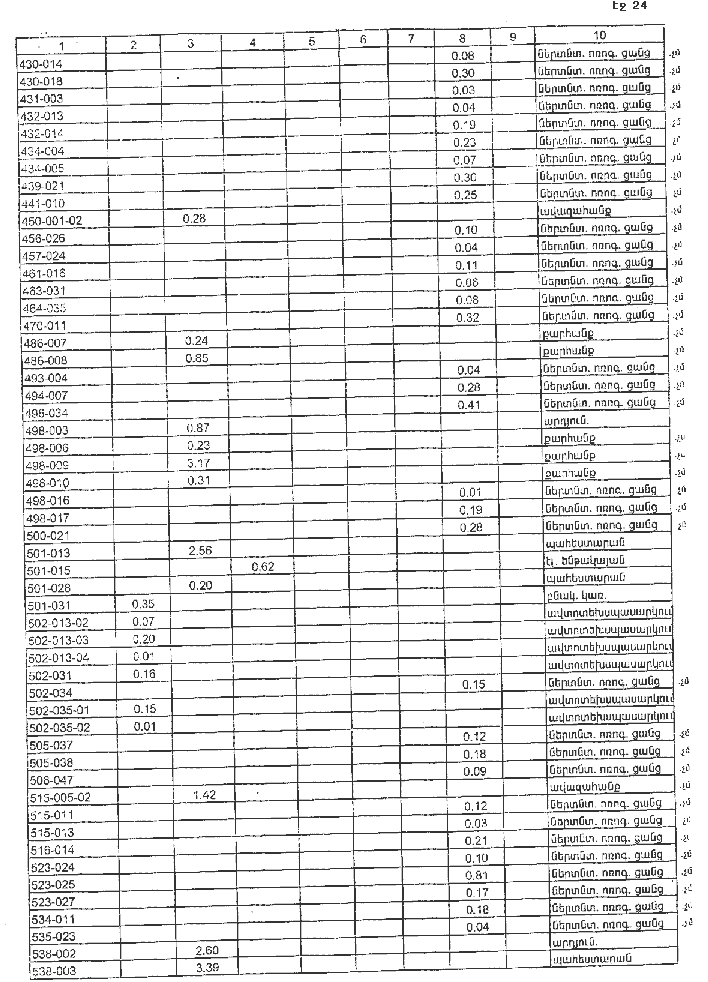 Էջ 24
1 2 3 4 5 6 7 8 9 10
430-014 0.08 ներտնտ. ոռոգ. ցանց
430-018 0.30 ներտնտ. ոռոգ. ցանց
431-003 0.03 ներտնտ. ոռոգ. ցանց
432-013 0.04 ներտնտ. ոռոգ. ցանց
432-014 0.19 ներտնտ. ոռոգ. ցանց
434-004 0.23 ներտնտ. ոռոգ. ցանց
434-005 0.07 ներտնտ. ոռոգ. ցանց
439-021 0.30 ներտնտ. ոռոգ. ցանց
441-010 0.25 ներտնտ. ոռոգ. ցանց
450-001-02 0.28 ավազահանք
456-026 0.10 ներտնտ. ոռոգ. ցանց
457-024 0.04 ներտնտ. ոռոգ. ցանց
461-016 0.11 ներտնտ. ոռոգ. ցանց
463-031 0.06 ներտնտ. ոռոգ. ցանց
464-035 0.08 ներտնտ. ոռոգ. ցանց
470-011 0.32 ներտնտ. ոռոգ. ցանց
486-007 0.24 քարհանք
486-008 0.85 քարհանք
493-004 0.04 ներտնտ. ոռոգ. ցանց
494-007 0.28 ներտնտ. ոռոգ. ցանց
496-034 0.41 ներտնտ. ոռոգ. ցանց
498-003 0.87 արդյուն.
498-006 0.23 քարհանք
498-009 3.17 քարհանք
498-010 0.31 քարհանք
498-016 0.01 ներտնտ. ոռոգ. ցանց
498-017 0.19 ներտնտ. ոռոգ. ցանց
500-021 0.28 ներտնտ. ոռոգ. ցանց
501-013 2.56 պահեստարան
501-015 0.62 էլ. ենթակայան
501-028 0.20 պահեստարան
501-031 0.35 բնակ. կառ.
502-013-02 0.07 ավտոտեխսպասարկում
502-013-03 0.20 ավտոտեխսպասարկում
502-013-04 0.01 ավտոտեխսպասարկում
502-031 0.16 ավտոտեխսպասարկում
502-034 0.15 ներտնտ. ոռոգ. ցանց
502-035-01 0.15 ավտոտեխսպասարկում
502-035-02 0.01 ավտոտեխսպասարկում
505-037 0.12 ներտնտ. ոռոգ. ցանց
505-038 0.18 ներտնտ. ոռոգ. ցանց
506-047 0.09 ներտնտ. ոռոգ. ցանց
515-005-02 1.42 ավազահանք
515-011 0.12 ներտնտ. ոռոգ. ցանց
515-013 0.03 ներտնտ. ոռոգ. ցանց
516-014 0.21 ներտնտ. ոռոգ. ցանց
523-024 0.10 ներտնտ. ոռոգ. ցանց
523-025 0.81 ներտնտ. ոռոգ. ցանց
523-027 0.17 ներտնտ. ոռոգ. ցանց
534-011 0.18 ներտնտ. ոռոգ. ցանց
535-023 0.04 ներտնտ. ոռոգ. ցանց
538-002 2.60 արդյուն.
538-003 3.39 պահեստարան